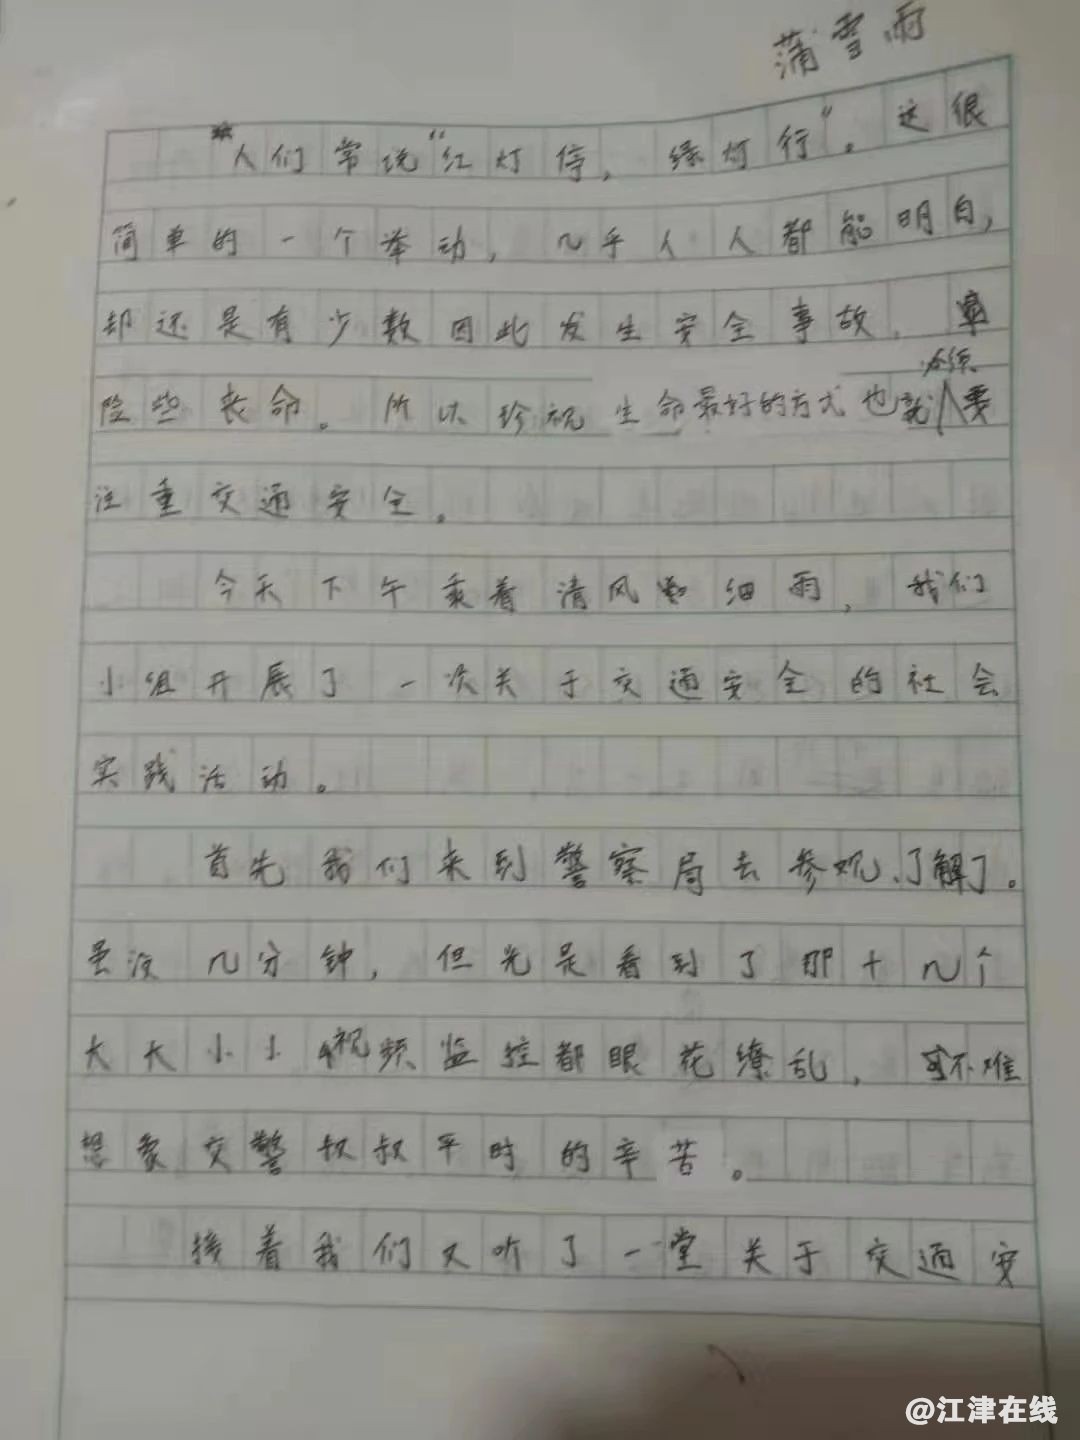 蒲雪雨
人们常说“红灯停，绿灯行”。这很
简单的一个举动，几乎人人都能明白，
却还是有少数因此发生安全事故，
险些丧命。所以珍视生命最好的方式也就必须要
注重交通安全。
今天下午乘着清风细雨，我们
小组开展了一次关于交通安全的社会
实践活动。
首先我们来到警察局去参观、了解了。
虽没几分钟，但光是看到了那十几个
大大小小视频监控都眼花缭乱，可不难
想象交警叔叔平时的辛苦。
接着我们又听了一堂关于交通安
@江津在线